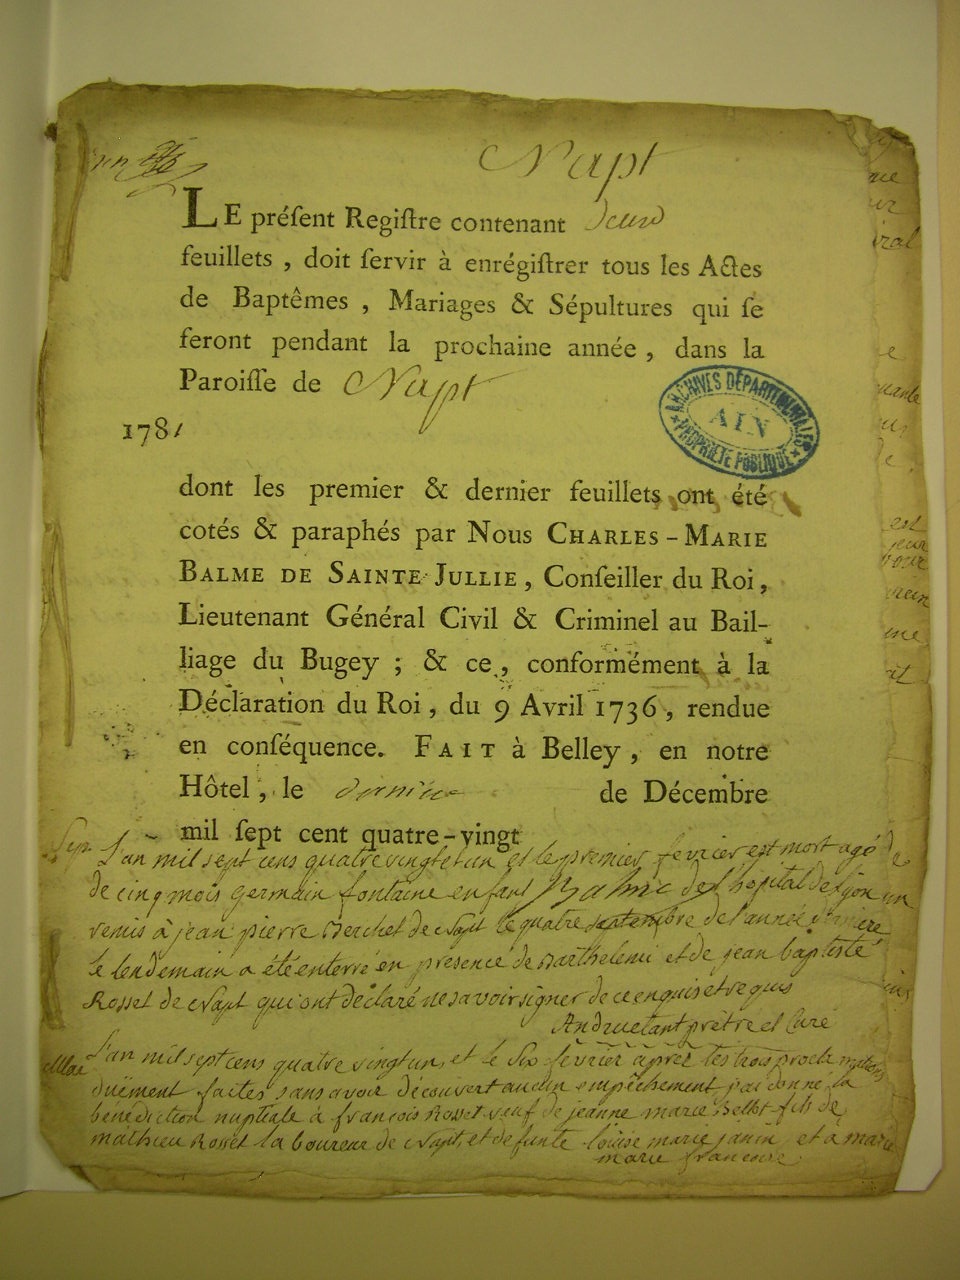 Napt
LE préſent Regiſtre contenant deux
feuillets , doit ſervir à enrégiſtrer tous les Actes
de Baptêmes , Mariages & Sépultures qui ſe
feront pendant la prochaine année , dans la
Paroiſſe de Napt
ARCHIVES DÉPARTEMENTALES
AIN
PROPRIÉTÉ PUBLIQUE
1781
dont les premier & dernier feuillets ont été
cotés & paraphés par Nous CHARLES-MARIE
BALME DE SAINTE-JULLIE, Conſeiller du Roi,
Lieutenant Général Civil & Criminel au Bail-
liage du Bugey ; & ce, conformément à la
Déclaration du Roi, du 9 Avril 1736, rendue
en conſéquence. FAIT à Belley, en notre
Hôtel, le dernier de Décembre
mil ſept cent quatre-vingt
Sep. L'an mil sept cens quatre vingt et un et le premier fevrier est mort agé
de cinq mois germain fontaine enfant Balme de l'hopital de lyon un
remis à jean pierre Berchet de Napt le quatre septembre de l'année derniere
Le lendemain a été enterré en presence de Barthelemi et de jean baptiste
Rosset de Napt qui ont declaré ne savoir signer de ce enquis et requis
Andruetant prêtre et Curé
Mar L'an mil sept cens quatre vingt un et le six fevrier après les trois proclamations
duement faites sans avoir découvert aucun empêchement j'ai donné la
benediction nuptiale à françois Rosset veuf de jeanne marie Bellot fils de
mathieu Rosset laboureur de Napt, et de funte louise marie janin et à marie
marie francoise